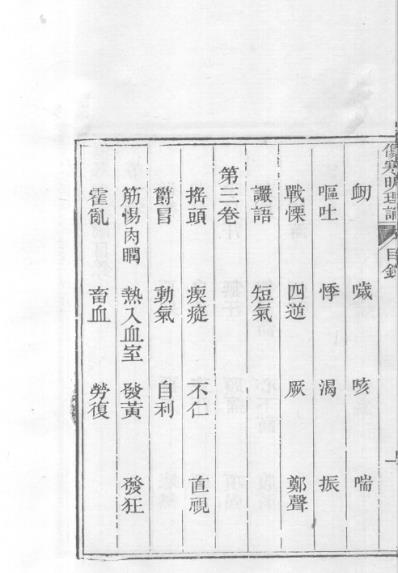 傷寒明理論 目錄
衂 噦 咳 喘
嘔吐 悸 渴 振
戰慄 四逆 厥 鄭聲
讝語 短氣
第三卷
搖頭 瘈瘲 不仁 直視
欝冒 動氣 自利
筋惕肉瞤 熱入血室 發黃 發狂
霍亂 畜血 勞復